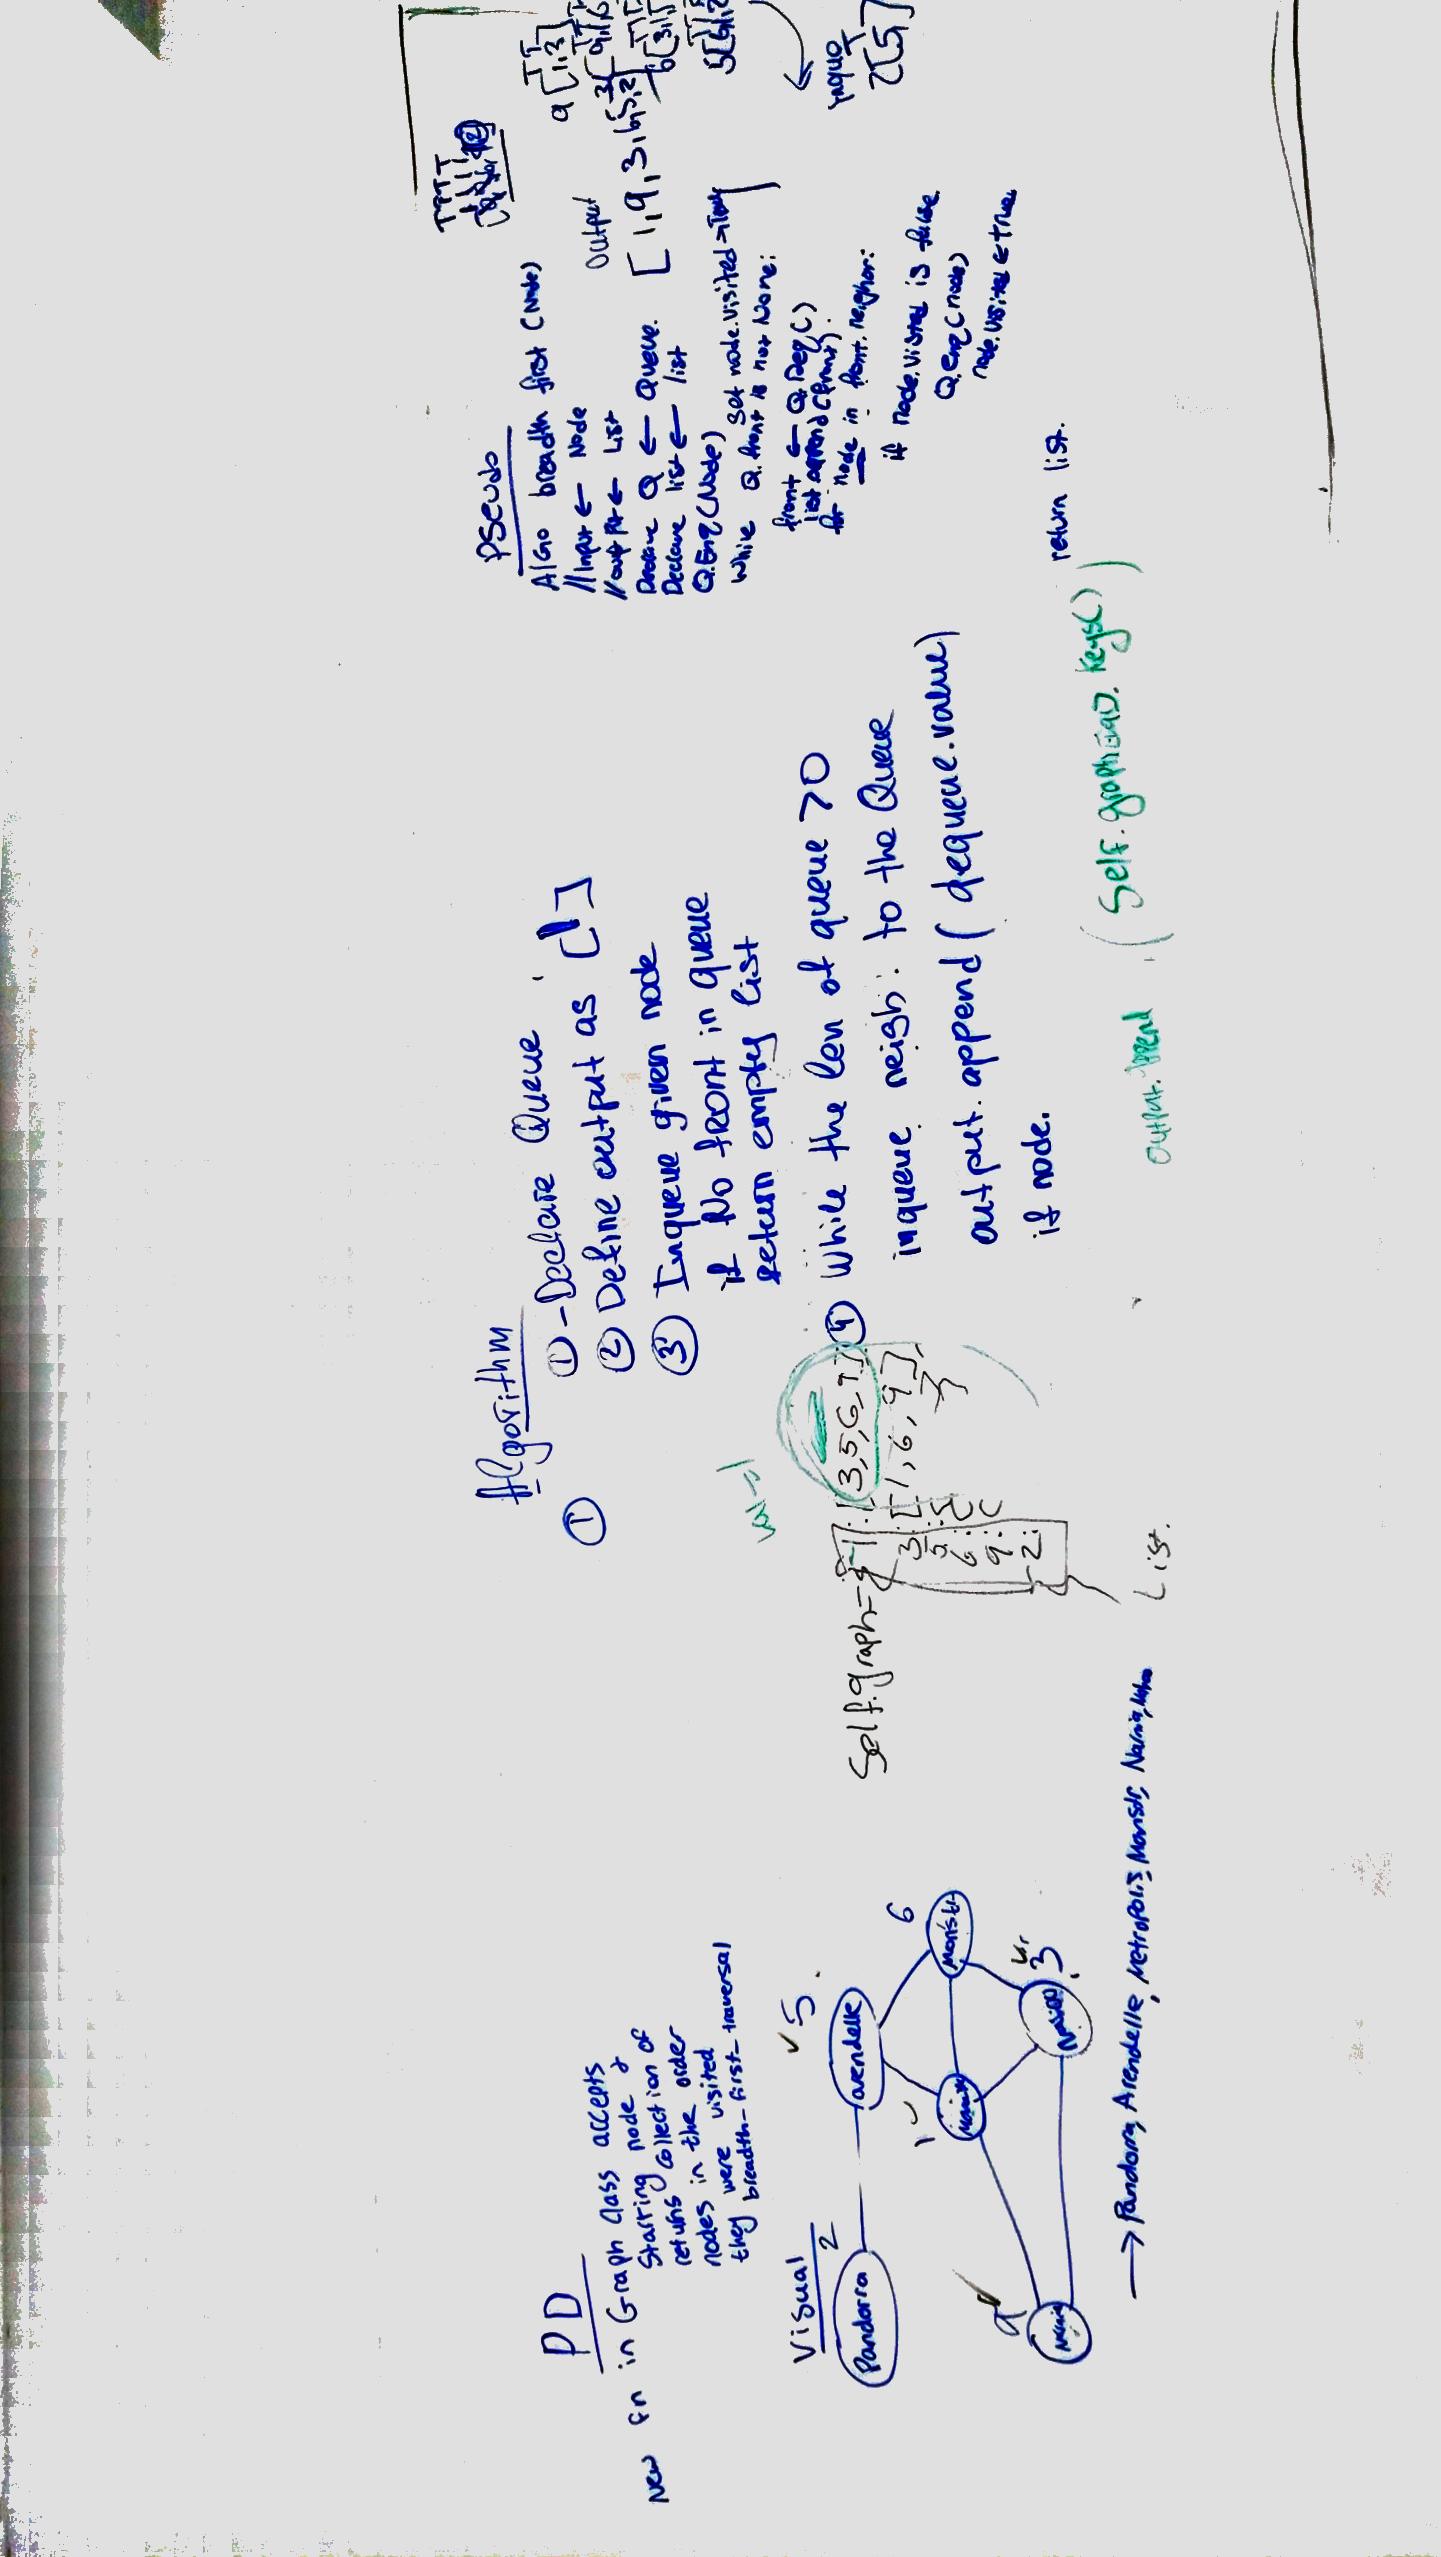 PD
New fn in Graph class accepts
starting node &
returns collection of
nodes in the order
they were visited
breadth-first-traversal
Visual
Pandorra
2
arendelle
5
6
1
3
9
→ Pandorra, Arendelle, Metropolis, Monistr, Narnia,
Algorithm
①
① - Declare Queue
② Define output as []
③ Inqueue given node
if No front in queue
return empty list
④ While the len of queue >0
inqueue neigh. to the Queue
output.append(dequeue.value)
if node.
Self.graph={
1:[3,5,6,9]
3:[1,6,9]
5:
6:
9:
2:
List.
output.
(Self.graph. keys())
Pseudo
AlGo breadth first (Node)
//Input ← Node
//output ← List
Declare Q ← Queue.
Declare list ← list
Q.Enq(Node) set node.visited =
While Q.front is not None:
front ← Q.Deq()
list append (front).
for node in front.neighor:
if node.visited is false
Q.enq(node)
node.visited ← true
return list.
output
[1,9,3,6,5,2]
9[1,3]
2[5]